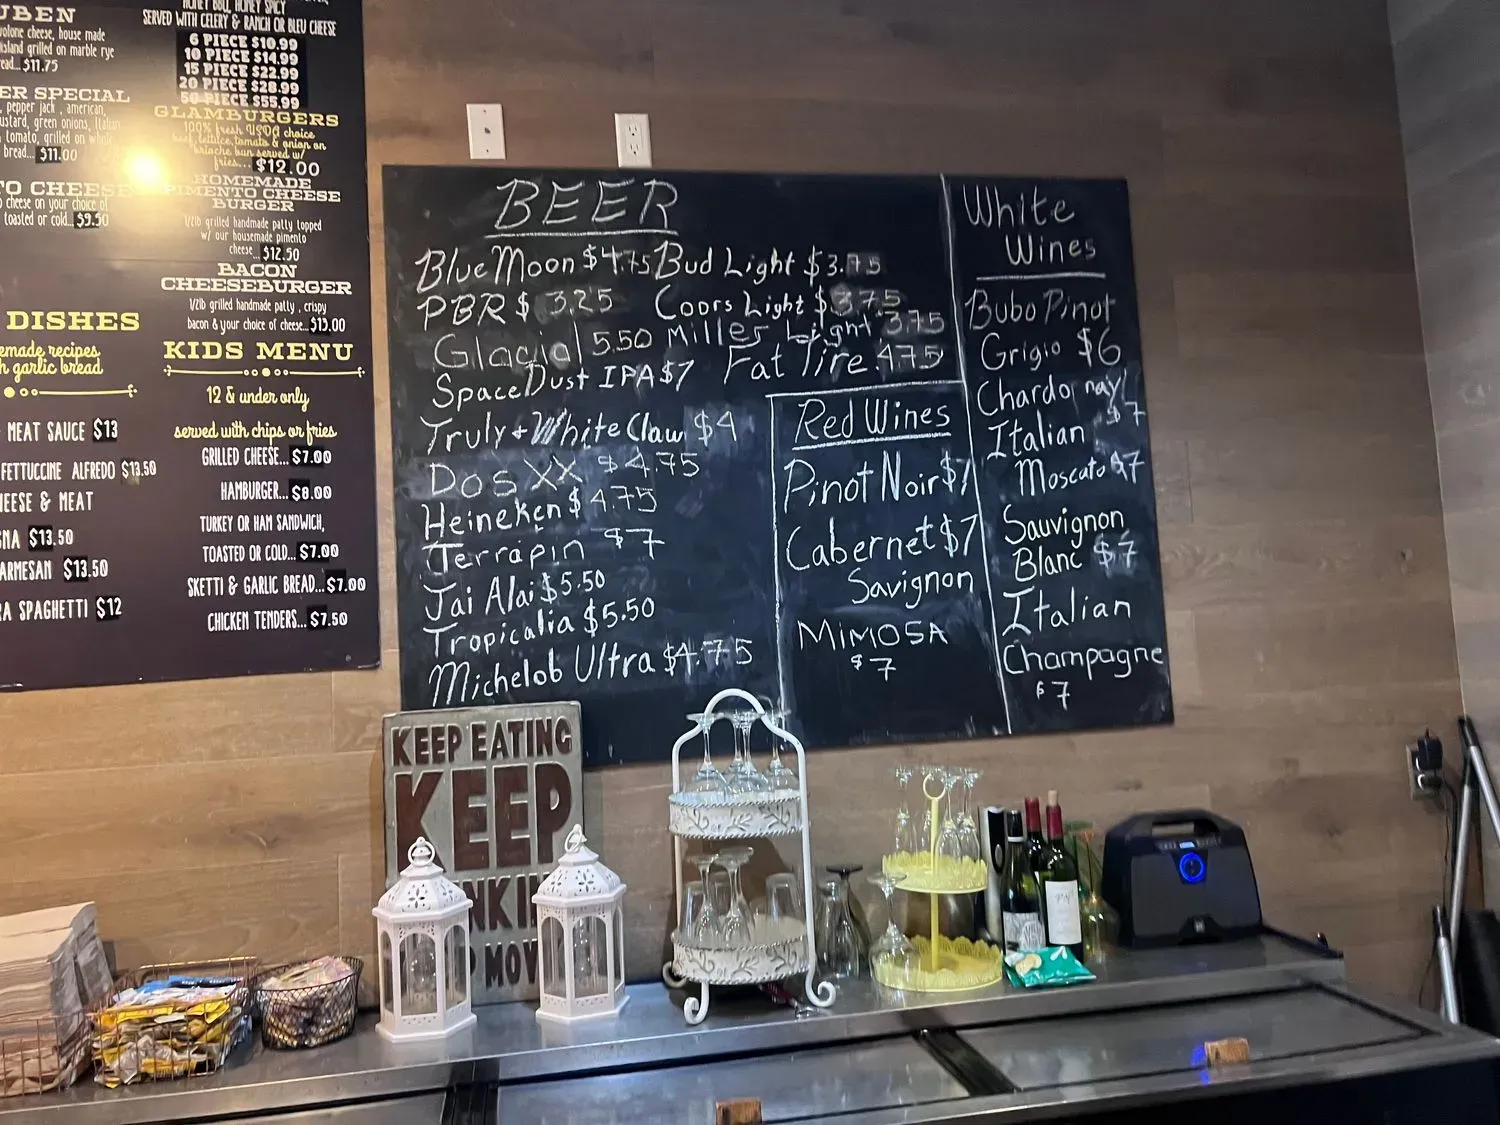 UBEN
volone cheese, house made
island grilled on marble rye
ead...$11.75
ER SPECIAL
, pepper jack , american,
ustard, green onions, Italian
tomato, grilled on
bread... $11.00
TO CHEESE
cheese on your choice of
toasted or cold... $9.50
DISHES
emade recipes
h garlic bread
MEAT SAUCE $13
FETTUCCINE ALFREDO $13.50
HEESE & MEAT
GNA $13.50
ARMESAN $13.50
RA SPAGHETTI $12
HONEY BBQ, HONEY SPICY
SERVED WITH CELERY & RANCH OR BLEU CHEESE
6 PIECE $10.99
10 PIECE $14.99
15 PIECE $22.99
20 PIECE $28.99
50 PIECE $55.99
GLAMBURGERS
100% fresh USDA choice
beef, lettuce, tomato & onion on
brioche bun served w/
fries... $12.00
HOMEMADE
PIMENTO CHEESE
BURGER
1/2lb grilled handmade patty topped
w/ our housemade pimento
cheese... $12.50
BACON
CHEESEBURGER
1/2lb grilled handmade patty , crispy
bacon & your choice of cheese... $13.00
KIDS MENU
12 & under only
served with chips or fries
GRILLED CHEESE... $7.00
HAMBURGER... $8.00
TURKEY OR HAM SANDWICH,
TOASTED OR COLD... $7.00
SKETTI & GARLIC BREAD... $7.00
CHICKEN TENDERS... $7.50
BEER
Blue Moon $4.75 Bud Light $3.75
PBR $ 3.25 Coors Light $3.75
Glacial 5.50 Miller Light 3.75
Space Dust IPA $7 Fat Tire 4.75
Truly + White Claw $4
Dos XX $4.75
Heineken $4.75
Terrapin $7
Jai Alai $5.50
Tropicalia $5.50
Michelob Ultra $4.75
Red Wines
Pinot Noir $7
Cabernet $7
Savignon
MIMOSA
$7
White
Wines
Bubo Pinot
Grigio $6
Chardonnay
$7
Italian
Moscato $7
Sauvignon
Blanc $7
Italian
Champagne
$7
KEEP EATING
KEEP
NK IN
MOV